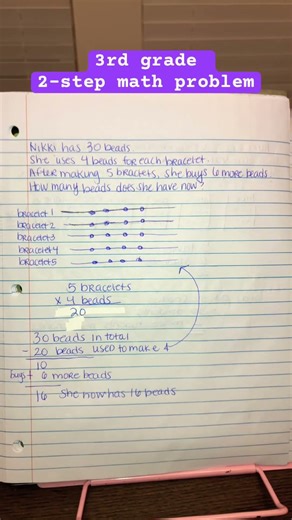 3rd grade
2-step math problem
Nikki has 30 beads
She uses 4 beads for each bracelet.
After making 5 braclets, she buys 6 more beads
How many beads does she have now?
bracelet 1
bracelet 2
bracelet 3
bracelet 4
bracelet 5
5 bracelets
x 4 beads
20
30 beads in total
- 20 beads used to make
10
buys + 6 more beads
16 She now has 16 beads